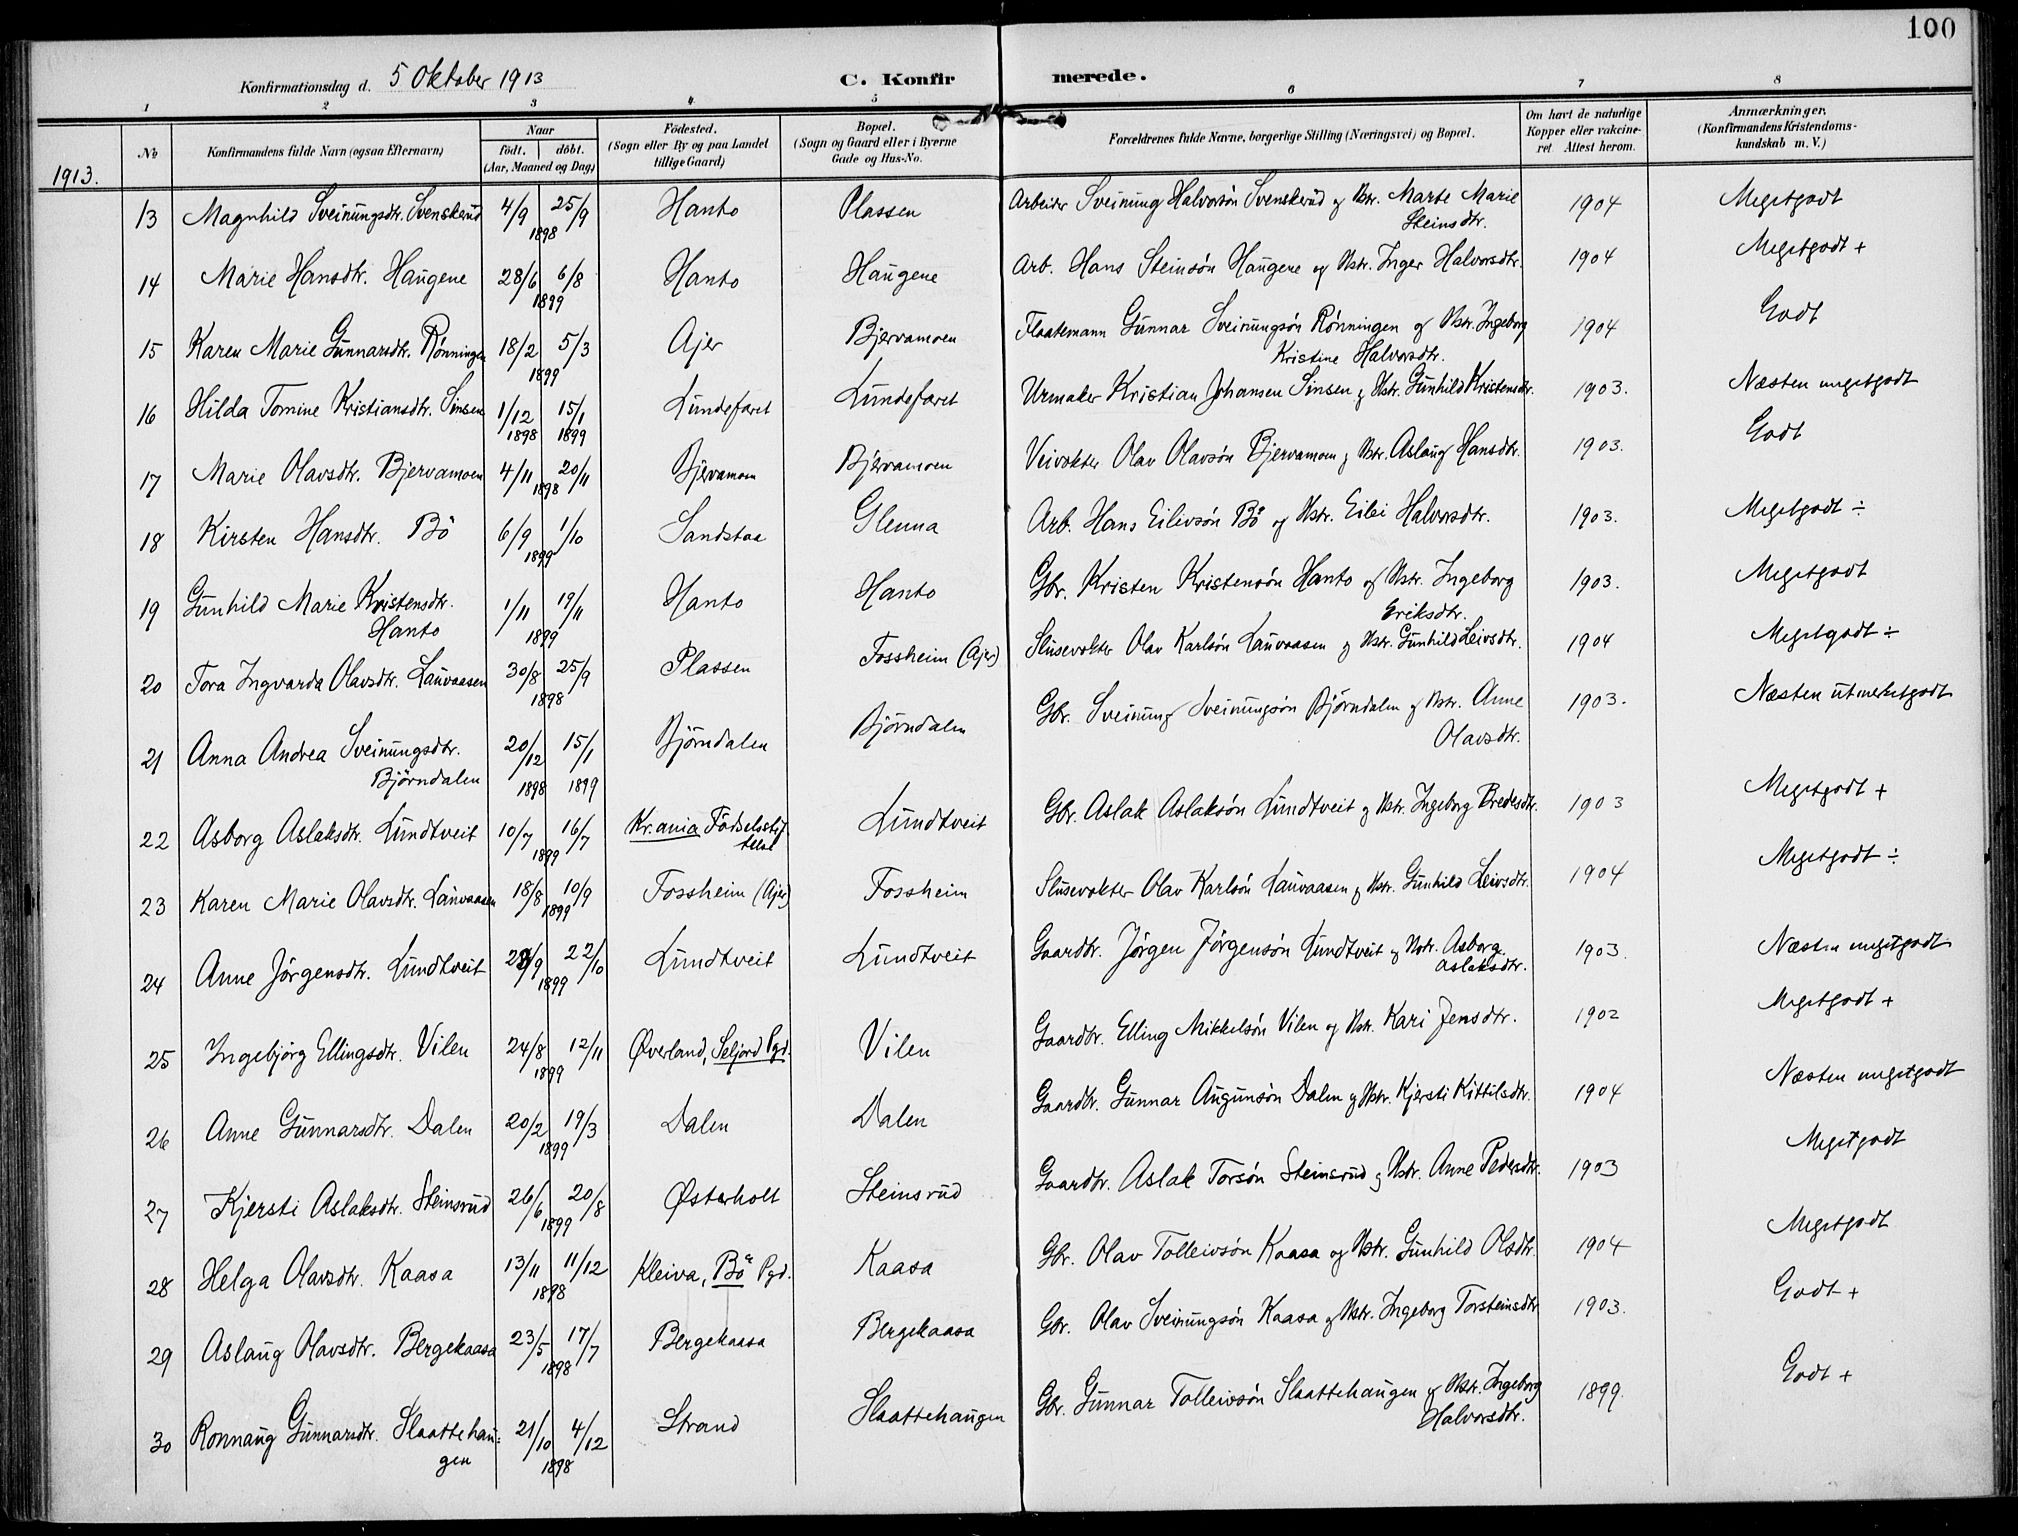 100
Konfirmationsdag d. 5 Oktober 1913
C. Konfir merede.
1 2 3 4 5 6 7 8
No
Konfirmandens fulde Navn (ogsaa Efternavn)
Naar
födt. döbt.
(Aar, Maaned og Dag)
Födested.
(Sogn eller By og paa Landet
tillige Gaard)
Bopæl.
(Sogn og Gaard eller i Byerne
Gade og Hus-No.
Forældrenes fulde Navne, borgerlige Stilling (Næringsvei) og Bopæl.
Om havt de naturlige
Kopper eller vakcine-
ret Attest herom.
Anmærkninger.
(Konfirmandens Kristendoms-
kundskab m. V.)
1913.
13 Magnhild Sveinungsdtr. Svenskerud 4/9 25/9 1898 Hanto Plassen Arbeider Sveinung Halvorsön Svenskerud og Hstr. Marte Marie Steinsdtr. 1904 Megetgodt
14 Marie Hansdtr. Haugene 28/6 6/8 1899 Hanto Haugene Arb. Hans Steinsön Haugene og Hstr. Inger Halvorsdtr. 1904 Megetgodt +
15 Karen Marie Gunnarsdtr. Rönningen 18/2 5/3 1899 Ajer Bjervamoen Flaatemann Gunnar Sveinungsön Rönningen og Hstr. Ingeborg Kristine Halvorsdtr. 1904 Godt
16 Hilda Tomine Kristiansdtr. Sinsen 1/12 1898 15/1 1899 Lundefaret Lundefaret Urmaker Kristian Johansen Sinsen og Hstr. Gunhild Kristensdtr. 1903. Næsten megetgodt
17 Marie Olavsdtr. Bjervamoen 4/11 20/11 1898 Bjervamoen Bjervamoen Veivokter Olav Olavsön Bjervamoen og Hstr. Aslaug Hansdtr. 1903. Godt
18 Kirsten Hansdtr. Bö 6/9 1/10 1899 Sandstaa Glenna Arb. Hans Eilivsön Bö og Hstr. Eilei Halvorsdtr. 1903. Megetgodt ÷
19 Gunhild Marie Kristensdtr. Hanto 1/11 19/11 1899 Hanto Hanto Gbr. Kristen Kristensön Hanto og Hstr. Ingeborg Eriksdtr. 1903. Megetgodt
20 Tora Ingvarda Olavsdtr. Lauvaasen 30/8 25/9 1898 Plassen Fossheim (Ajer) Slusevokter Olav Karlsön Lauvaasen og Hstr. Gunhild Leivsdtr. 1904 Megetgodt ÷
21 Anna Andrea Sveinungsdtr. Björndalen 20/12 1898 15/1 1899 Björndalen Björndalen Gbr. Sveinung Sveinungsön Björndalen og Hstr. Anne Olavsdtr. 1903. Næsten utmerketgodt
22 Asborg Aslaksdtr. Lundtveit 10/7 16/7 1899 Kr.ania Födselsstiftelse Lundtveit Gbr. Aslak Aslaksön Lundtveit og Hstr. Ingeborg Bredesdtr. 1903 Megetgodt +
23 Karen Marie Olavsdtr. Lauvaasen 18/8 10/9 1899 Fossheim (Ajer) Fossheim Slusevokter Olav Karlsön Lauvaasen og Hstr. Gunhild Leivsdtr. 1904 Megetgodt ÷
24 Anne Jörgensdtr. Lundtveit /9 22/10 1899 Lundtveit Lundtveit Gaardbr. Jörgen Jörgensön Lundtveit og Hstr. Asborg Aslaksdtr. 1903. Næsten megetgodt
25 Ingebjörg Ellingsdtr. Vilen 24/8 12/11 1899 Øverland, Seljord Pgd. Vilen Gaardbr. Elling Mikkelsön Vilen og Hstr. Kari Jensdtr. 1902 Megetgodt +
26 Anne Gunnarsdtr. Dalen 20/2 19/3 1899 Dalen Dalen Gaardbr. Gunnar Augunsön Dalen og Hstr. Kjersti Kittilsdtr. 1904 Næsten megetgodt
27 Kjersti Aslaksdtr. Steinsrud 26/6 20/8 1899 Østerholt Steinsrud Gaardbr. Aslak Torsön Steinsrud og Hstr. Anne Pedersdtr. 1903 Megetgodt
28 Helga Olavsdtr. Kaasa 13/11 11/12 1898 Kleiva, Bö Pgd. Kaasa Gbr. Olav Tolleivsön Kaasa og Hstr. Gunhild Olsdtr. 1904 Megetgodt
29 Aslaug Olavsdtr. Bergekaasa 23/5 17/7 1898 Bergekaasa Bergekaasa Gbr. Olav Sveinungsön Kaasa og Hstr. Ingeborg Torsteinsdtr 1903. Godt +
30 Ronnaug Gunnarsdtr. Slaattehaugen 21/10 4/12 1898 Strand Slaattehaugen Gbr. Gunnar Tolleivsön Slaattehaugen og Hstr. Ingeborg Halvorsdtr. 1899. Godt +